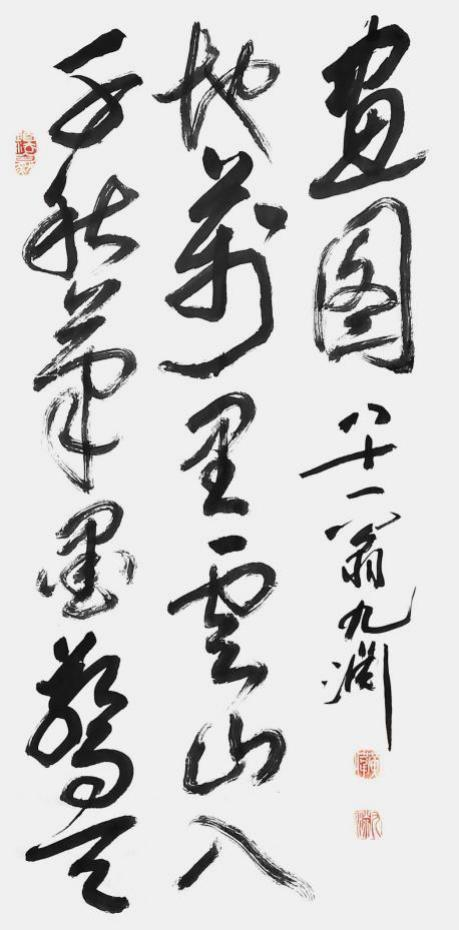 千秋筆墨驚天
地萬里雲山入
畫图
八十一翁九渊